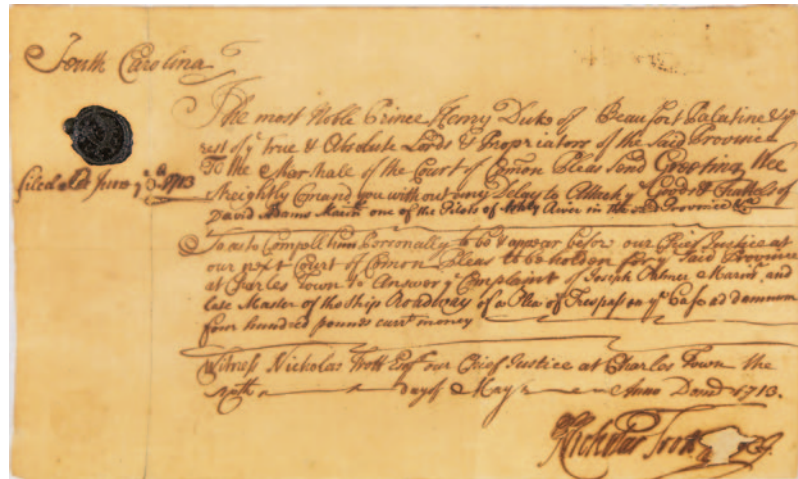 South Carolina
The most Noble Prince Henry Duke of Beaufort Palatine & ye
rest of ye true & Absolute Lords & Propriators of the said Province
To the Marshall of the Court of Comon Pleas Send Greeting Wee
streightly Comand you without any Delay to Attach ye Goods & Chattels of
filed att June ye 1713
David Adams Marinr one of the Pilots of Ashly River in the sd Province &c
So as to Compell him Personally to be & appear before our Chief Justice at
our next Court of Comon Pleas to be holden for ye Said Province
at Charles Town to Answer ye Complaint of Joseph Palmer Marinr. and
late Master of the Ship Roadway of a Plea of Trespass on ye Case ad damnum
four hundred pounds currt money
Witness Nicholas Trott Esqr our Chief Justice at Charles Town the
day of May Anno Domi 1713.
Nicholas Trott